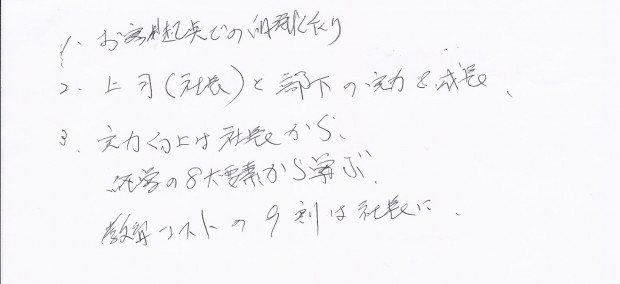 1. お客様起点での組織作り
2. 上司(社長)と部下の実力を成長、
3. 実力向上は社長から、
経営の8大要素から学ぶ、
教育コストの9割は社長に、